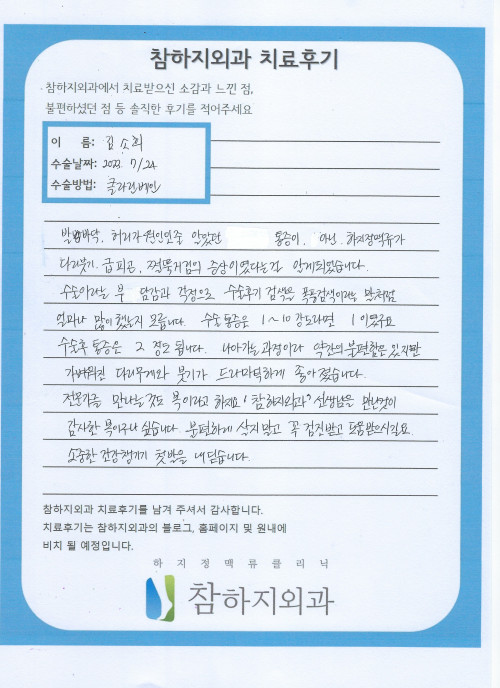 참하지외과 치료후기
참하지외과에서 치료받으신 소감과 느낀 점,
불편하셨던 점 등 솔직한 후기를 적어주세요
이 름: 김소희
수술날짜: 2022 7/24
수술방법: 클라리베인
발바닥, 허리가 원인인줄 알았던 통증이, 아닌 하지정맥류가
다리붓기. 급피곤, 찌뿌둥거림의 증상이였다는걸 알게되었습니다.
수술이라는 부담감과 걱정으로 수술후기 검색을 폭풍검색이라는 말처럼
얼마나 많이 했는지 모릅니다. 수술 통증은 1~10 강도라면 1 이였구요
수술후 통증은 2 정도 됩니다. 나아가는 과정이라 약간의 불편함은 있지만
가벼워진 다리무게와 붓기가 드라마틱하게 좋아졌습니다.
전문가를 만나는것도 복이라고 하지요' 참하지외과" 선생님을 만난것이
감사한 복이구나 싶습니다. 불편하게 살지말고 꼭 검진받고 도움받으시길요.
소중한 건강챙기기 첫발을 내딛습니다.
참하지외과 치료후기를 남겨 주셔서 감사합니다.
치료후기는 참하지외과의 블로그, 홈페이지 및 원내에
비치 될 예정입니다.
하지정맥류클리닉
참하지외과